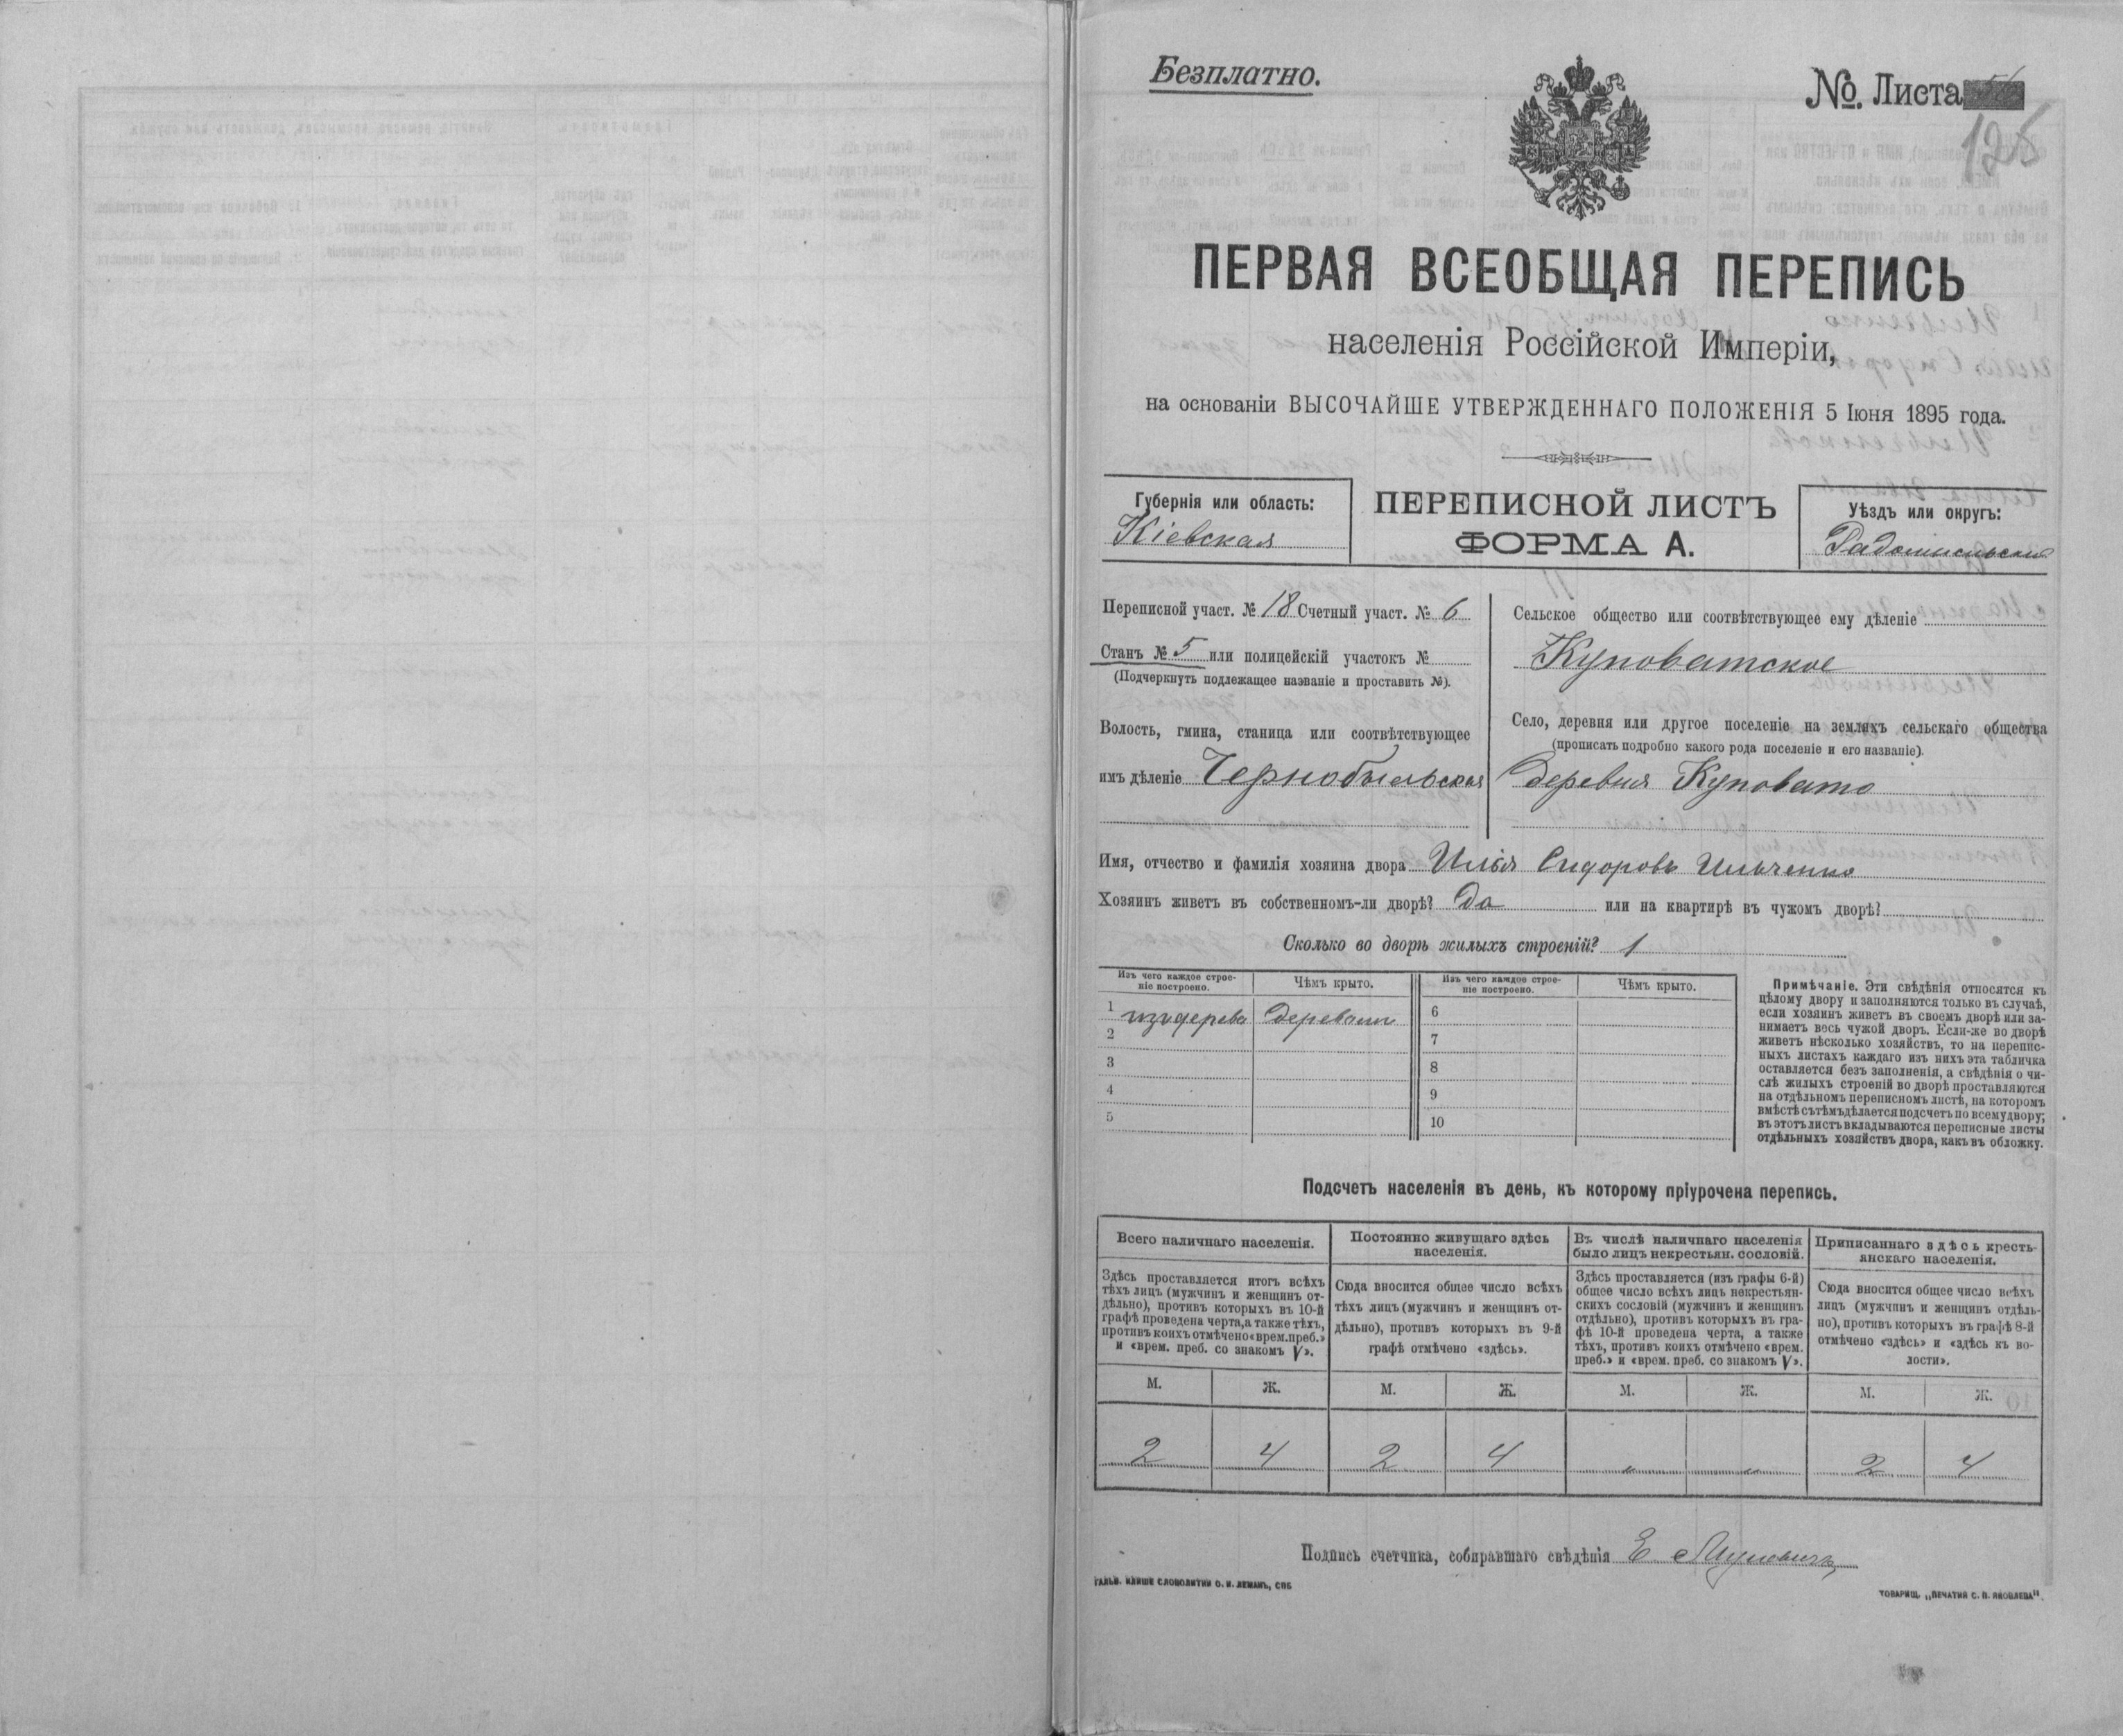 Безплатно.
№ Листа
125
ПЕРВАЯ ВСЕОБЩАЯ ПЕРЕПИСЬ
населенія Россійской Имперіи,
на основаніи ВЫСОЧАЙШЕ УТВЕРЖДЕННАГО ПОЛОЖЕНІЯ 5 Іюня 1895 года.
Губернія или область:
Кіевская
ПЕРЕПИСНОЙ ЛИСТЪ
ФОРМА А.
Уѣздъ или округъ:
Радомысльскій
Переписной участ. № 18 Счетный участ. № 6
Станъ № 5 или полицейскій участокъ №
(Подчеркнуть подлежащее названіе и проставить №).
Волость, гмина, станица или соотвѣтствующее
имъ дѣленіе Чернобыльская
Сельское общество или соотвѣтствующее ему дѣленіе
Куповатское
Село, деревня или другое поселеніе на земляхъ сельскаго общества
(прописать подробно какого рода поселеніе и его названіе).
деревня Куповато
Имя, отчество и фамилія хозяина двора Илья Сидоровъ Ильченко
Хозяинъ живетъ въ собственномъ-ли дворѣ? Да или на квартирѣ въ чужомъ дворѣ?
Сколько во дворѣ жилыхъ строеній? 1
Изъ чего каждое строе-
ніе построено.
Чѣмъ крыто.
Изъ чего каждое строе-
ніе построено.
Чѣмъ крыто.
1 изъ дерева
6
2
7
3
8
4
9
5
10
Примѣчаніе. Эти свѣдѣнія относятся къ
цѣлому двору и заполняются только въ случаѣ,
если хозяинъ живетъ въ своемъ дворѣ или за-
нимаетъ весь чужой дворъ. Если-же во дворѣ
живетъ нѣсколько хозяйствъ, то на перепис-
ныхъ листахъ каждаго изъ нихъ эта табличка
оставляется безъ заполненія, а свѣдѣнія о чи-
слѣ жилыхъ строеній во дворѣ проставляются
на отдѣльномъ переписномъ листѣ, на которомъ
вмѣстѣ съ тѣмъ дѣлается подсчетъ по всему двору;
въ этотъ листъ вкладываются переписные листы
отдѣльныхъ хозяйствъ двора, какъ въ обложку.
Подсчетъ населенія въ день, къ которому пріурочена перепись.
Всего наличнаго населенія.
Здѣсь проставляется итогъ всѣхъ
тѣхъ лицъ (мужчинъ и женщинъ от-
дѣльно), противъ которыхъ въ 10-й
графѣ проведена черта, а также тѣхъ,
противъ коихъ отмѣчено «врем. преб.»
и «врем. преб. со знакомъ V».
Постоянно живущаго здѣсь
населенія.
Сюда вносится общее число всѣхъ
тѣхъ лицъ (мужчинъ и женщинъ от-
дѣльно), противъ которыхъ въ 9-й
графѣ отмѣчено «здѣсь».
Въ числѣ наличнаго населенія
было лицъ некрестьян. сословій.
Здѣсь проставляется (изъ графы 6-й)
общее число всѣхъ лицъ некрестьян-
скихъ сословій (мужчинъ и женщинъ
отдѣльно), противъ которыхъ въ гра-
фѣ 10-й проведена черта, а также
тѣхъ, противъ коихъ отмѣчено «врем.
преб.» и «врем. преб. со знакомъ V».
Приписаннаго здѣсь кресть-
янскаго населенія.
Сюда вносится общее число всѣхъ
лицъ (мужчинъ и женщинъ отдѣль-
но), противъ которыхъ въ графѣ 8-й
отмѣчено «здѣсь» и «здѣсь къ во-
лости».
М. Ж. М. Ж. М. Ж. М. Ж.
2 4 2 4 „ „ 2 4
Подпись счетчика, собиравшаго свѣдѣнія Е
ГАЛЬВ. КЛИШЕ СЛОВОЛИТНИ О. И. ЛЕМАНЪ, СПБ
ТОВАРИЩ. „ПЕЧАТНЯ С. П. ЯКОВЛЕВА".